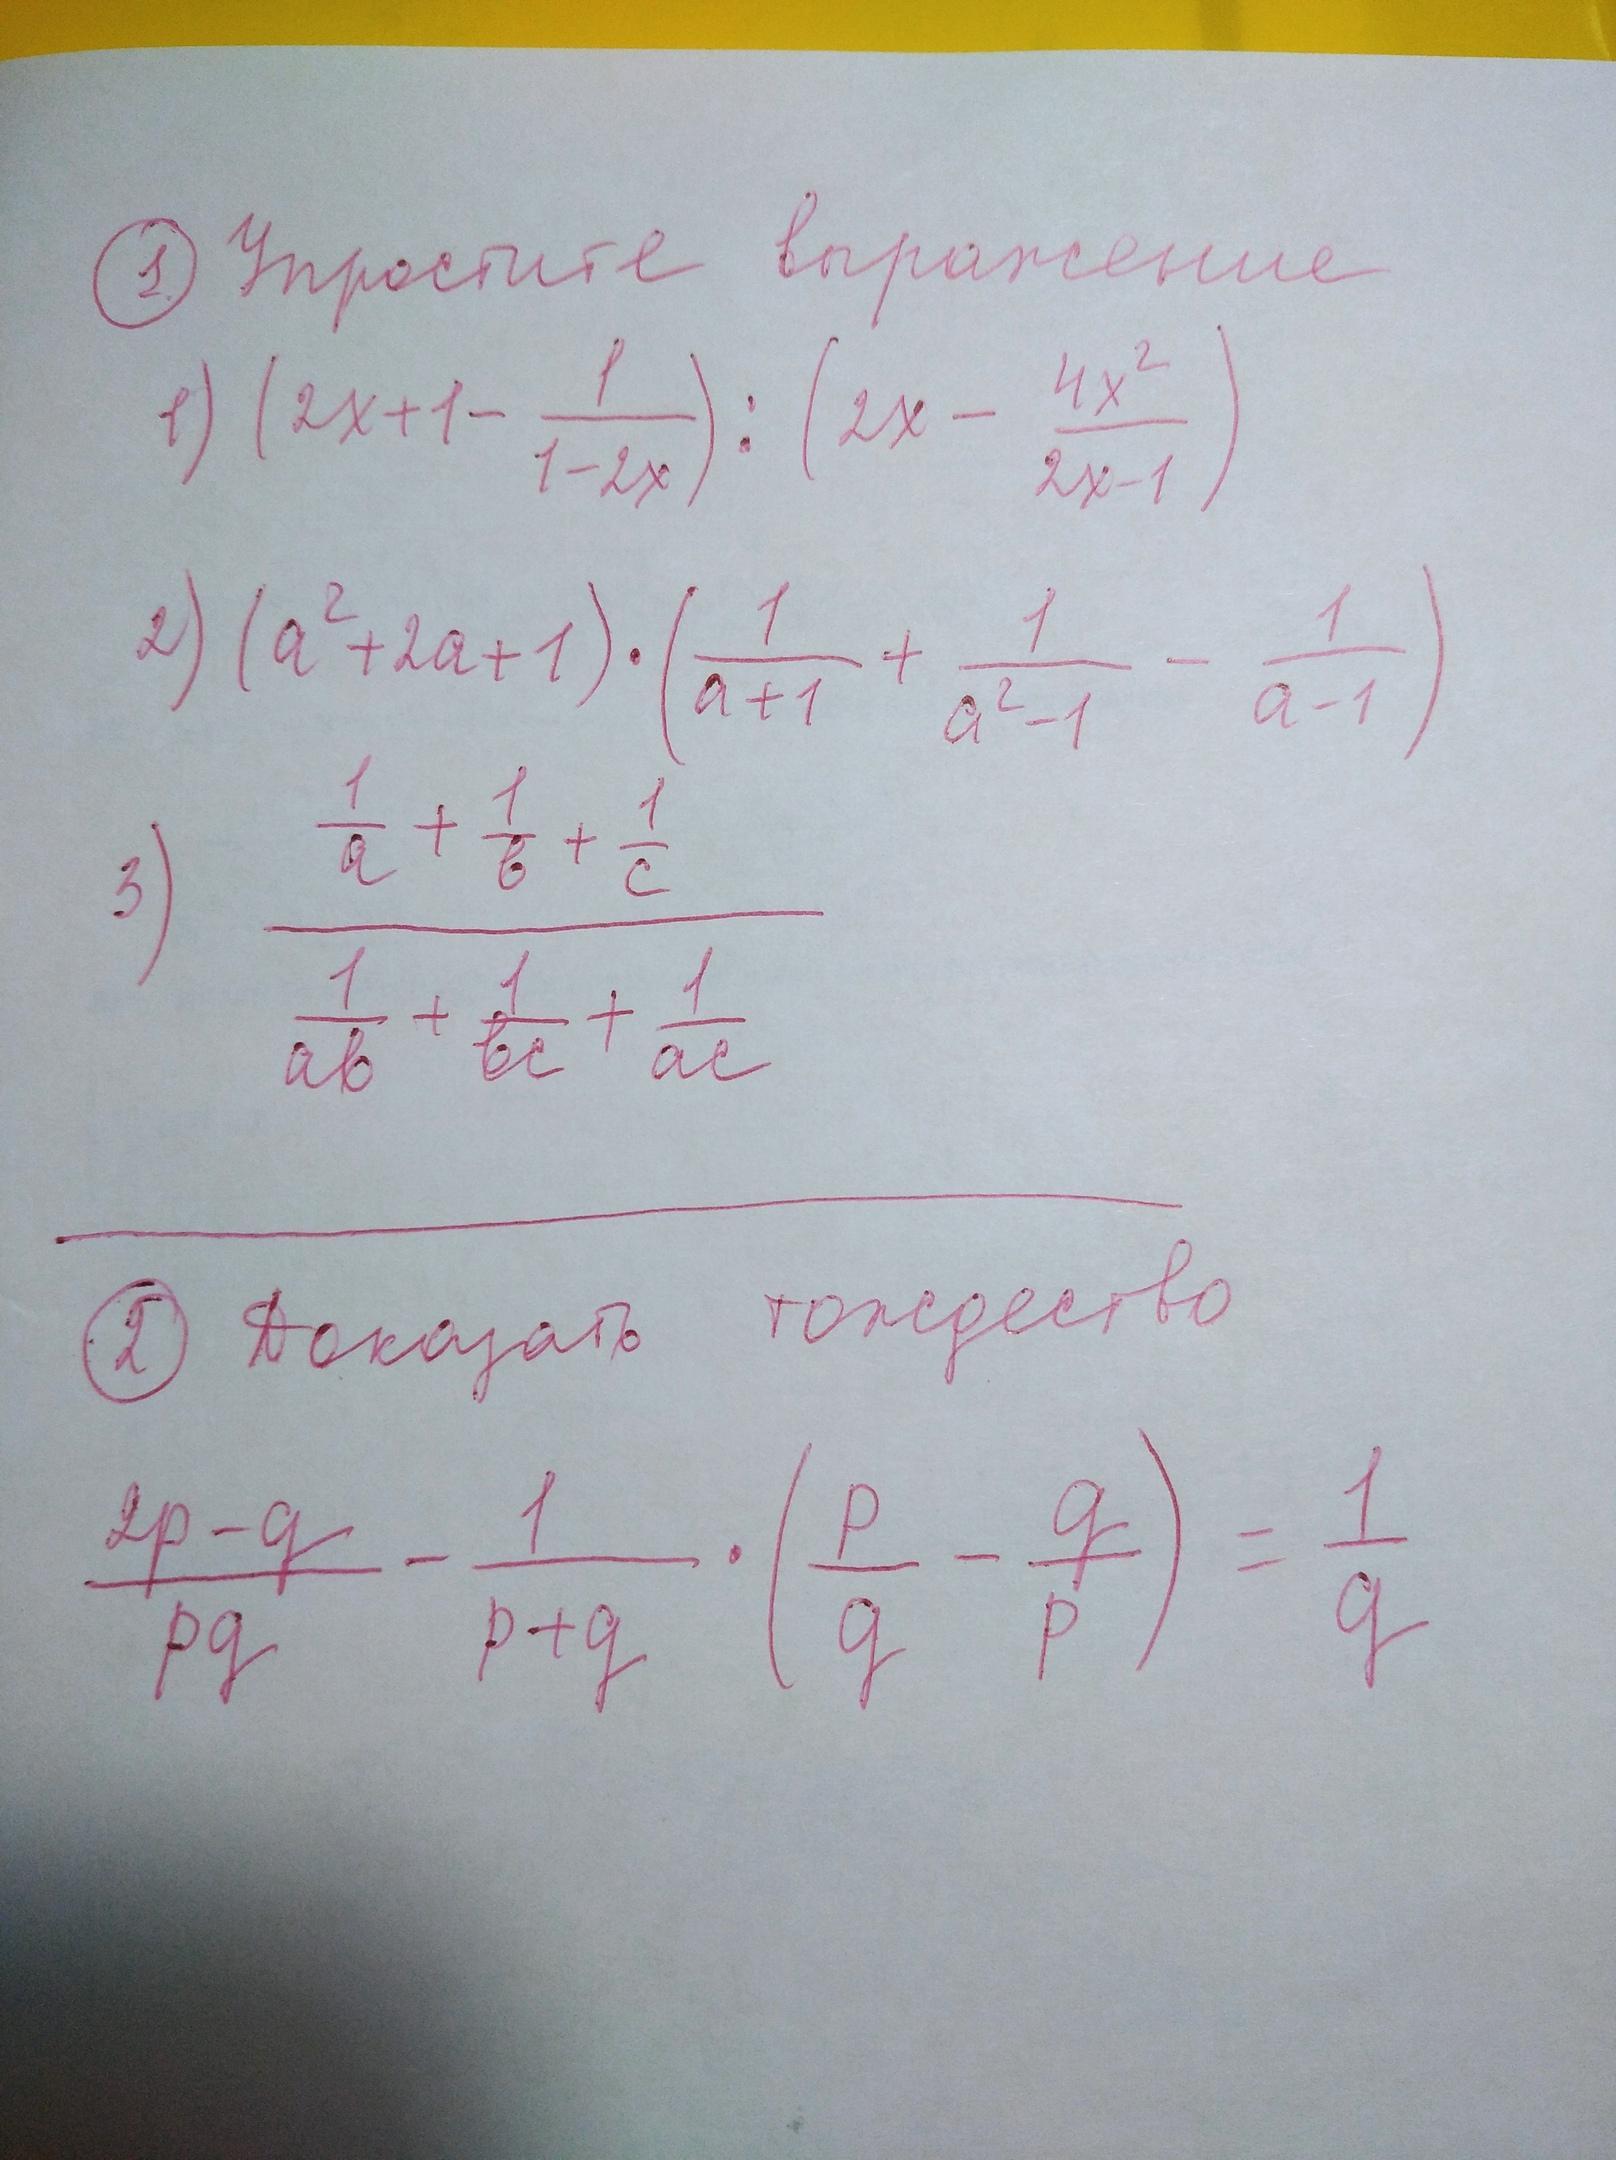 ① Упростите выражение
1) (2x+1- 1/(1-2x)) : (2x - 4x²/(2x-1))
2) (a²+2a+1) · (1/(a+1) + 1/(a²-1) - 1/(a-1))
3) (1/a + 1/b + 1/c)/(1/ab + 1/bc + 1/ac)
② Доказать тождество
(2p-q)/pq - 1/(p+q) · (p/q - q/p) = 1/q